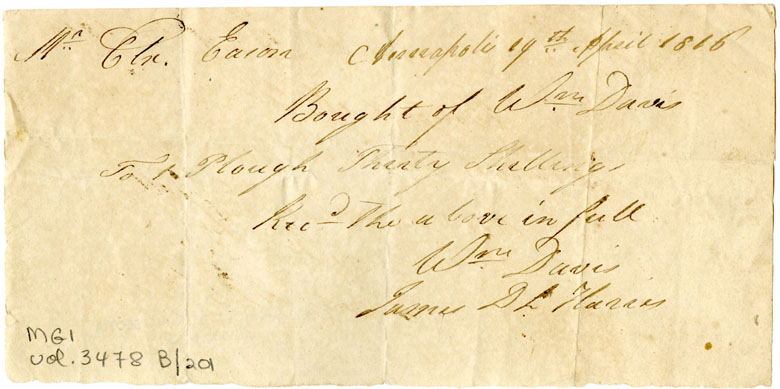 Mr. Elr. Eason Annapolis 19th April 1816
Bought of Wm Davis
To 1 Plough Thirty Shillings
Recd The above in full
Wm Davis
James D L Harris
MG1
vol. 3478 B/201